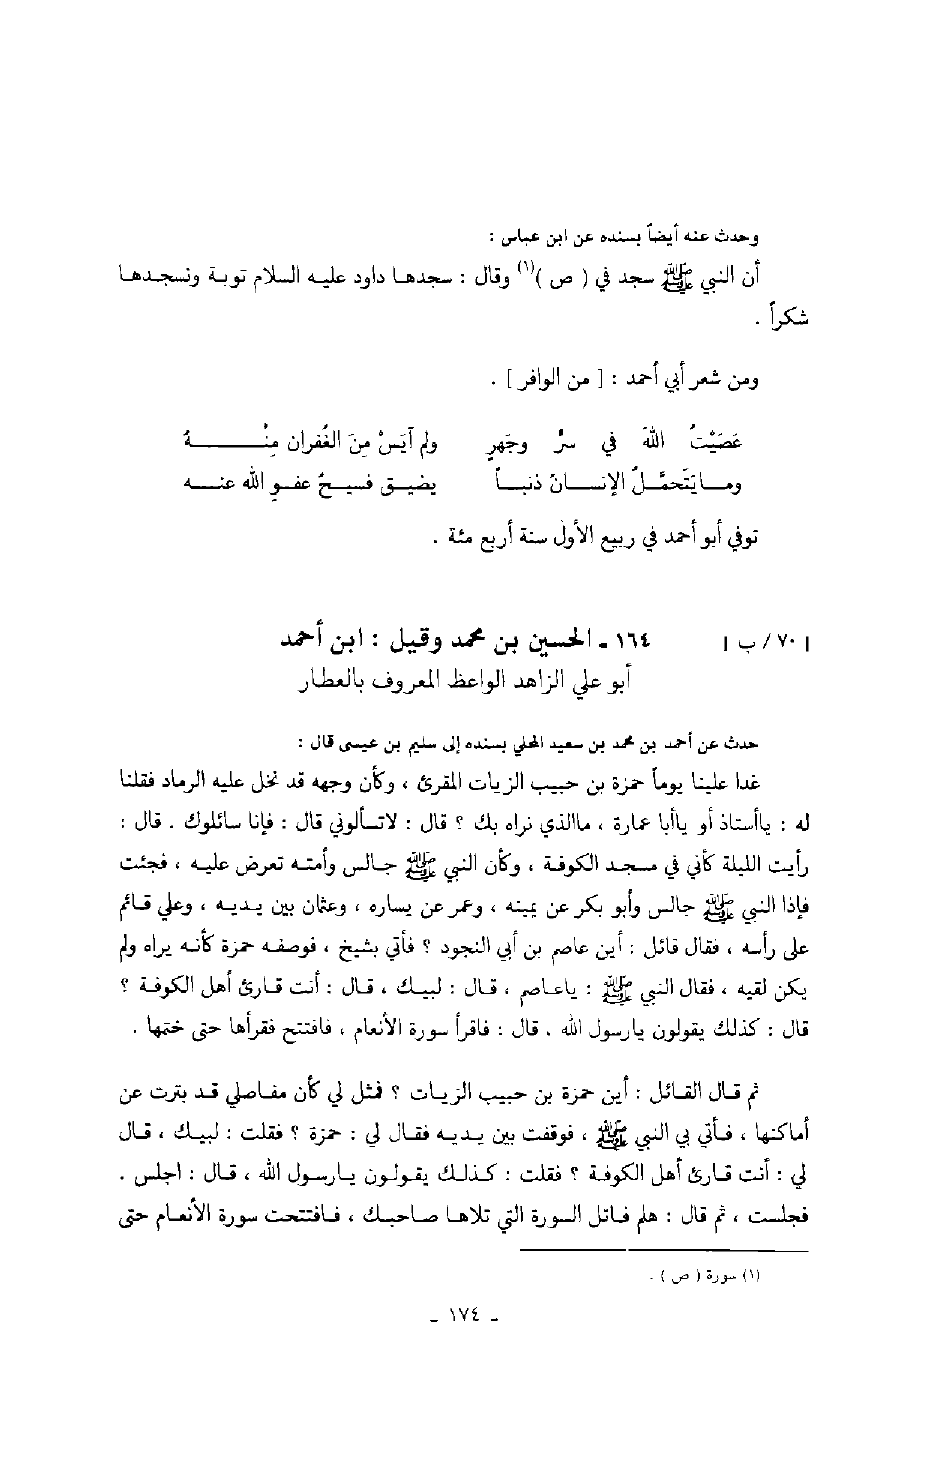 وحدث عنه أيضاً بسنده عن ابن عباس :
أن النبي ﷺ سجد في ( ص )(١) وقال : سجدها داود عليه السلام توبة ونسجدها
شكراً .
ومن شعر أبي أحمد : [ من الوافر ] .
عَصَيْتُ الله في سرٍّ وجَهرٍ ولم آيَسْ مِنَ الغُفران مِنْهُ
وما يَتَحمَّلُ الإنسان ذنباً يضيق فسيحُ عفوِ الله عنه
توفي أبو أحمد في ربيع الأول سنة أربع مئة .
[ ٧٠ / ب ] ١٦٤ - الحسين بن محمد وقيل : ابن أحمد
أبو علي الزاهد الواعظ المعروف بالعطار
حدث عن أحمد بن محمد بن سعيد المحلي بسنده إلى سليم بن عيسى قال :
غدا علينا يوماً حمزة بن حبيب الزيات المقرئ ، وكأن وجهه قد نخل عليه الرماد فقلنا
له : ياأستاذ أو ياأبا عمارة ، ماالذي نراه بك ؟ قال : لاتسألوني قال : فإنا سائلوك . قال :
رأيت الليلة كأني في مسجد الكوفة ، وكأن النبي ﷺ جالس وأمته تعرض عليه ، فجئت
فإذا النبي ﷺ جالس وأبو بكر عن يمينه ، وعمر عن يساره ، وعثمان بين يديه ، وعلي قائم
على رأسه ، فقال قائل : أين عاصم بن أبي النجود ؟ فأتي بشيخ ، فوصفه حمزة كأنه يراه ولم
يكن لقيه ، فقال النبي ﷺ : ياعاصم ، قال : لبيك ، قال : أنت قارئ أهل الكوفة ؟
قال : كذلك يقولون يارسول الله . قال : فاقرأ سورة الأنعام ، فافتتح فقرأها حتى ختمها .
ثم قال القائل : أين حمزة بن حبيب الزيات ؟ فمثل لي كأن مفاصلي قد بترت عن
أماكنها ، فأتي بي النبي ﷺ ، فوقفت بين يديه فقال لي : حمزة ؟ فقلت : لبيك ، قال
لي : أنت قارئ أهل الكوفة ؟ فقلت : كذلك يقولون يارسول الله ، قال : اجلس .
فجلست ، ثم قال : هلم فاتل السورة التي تلاها صاحبك ، فافتتحت سورة الأنعام حتى
(١) سورة ( ص ) .
- ١٧٤ -